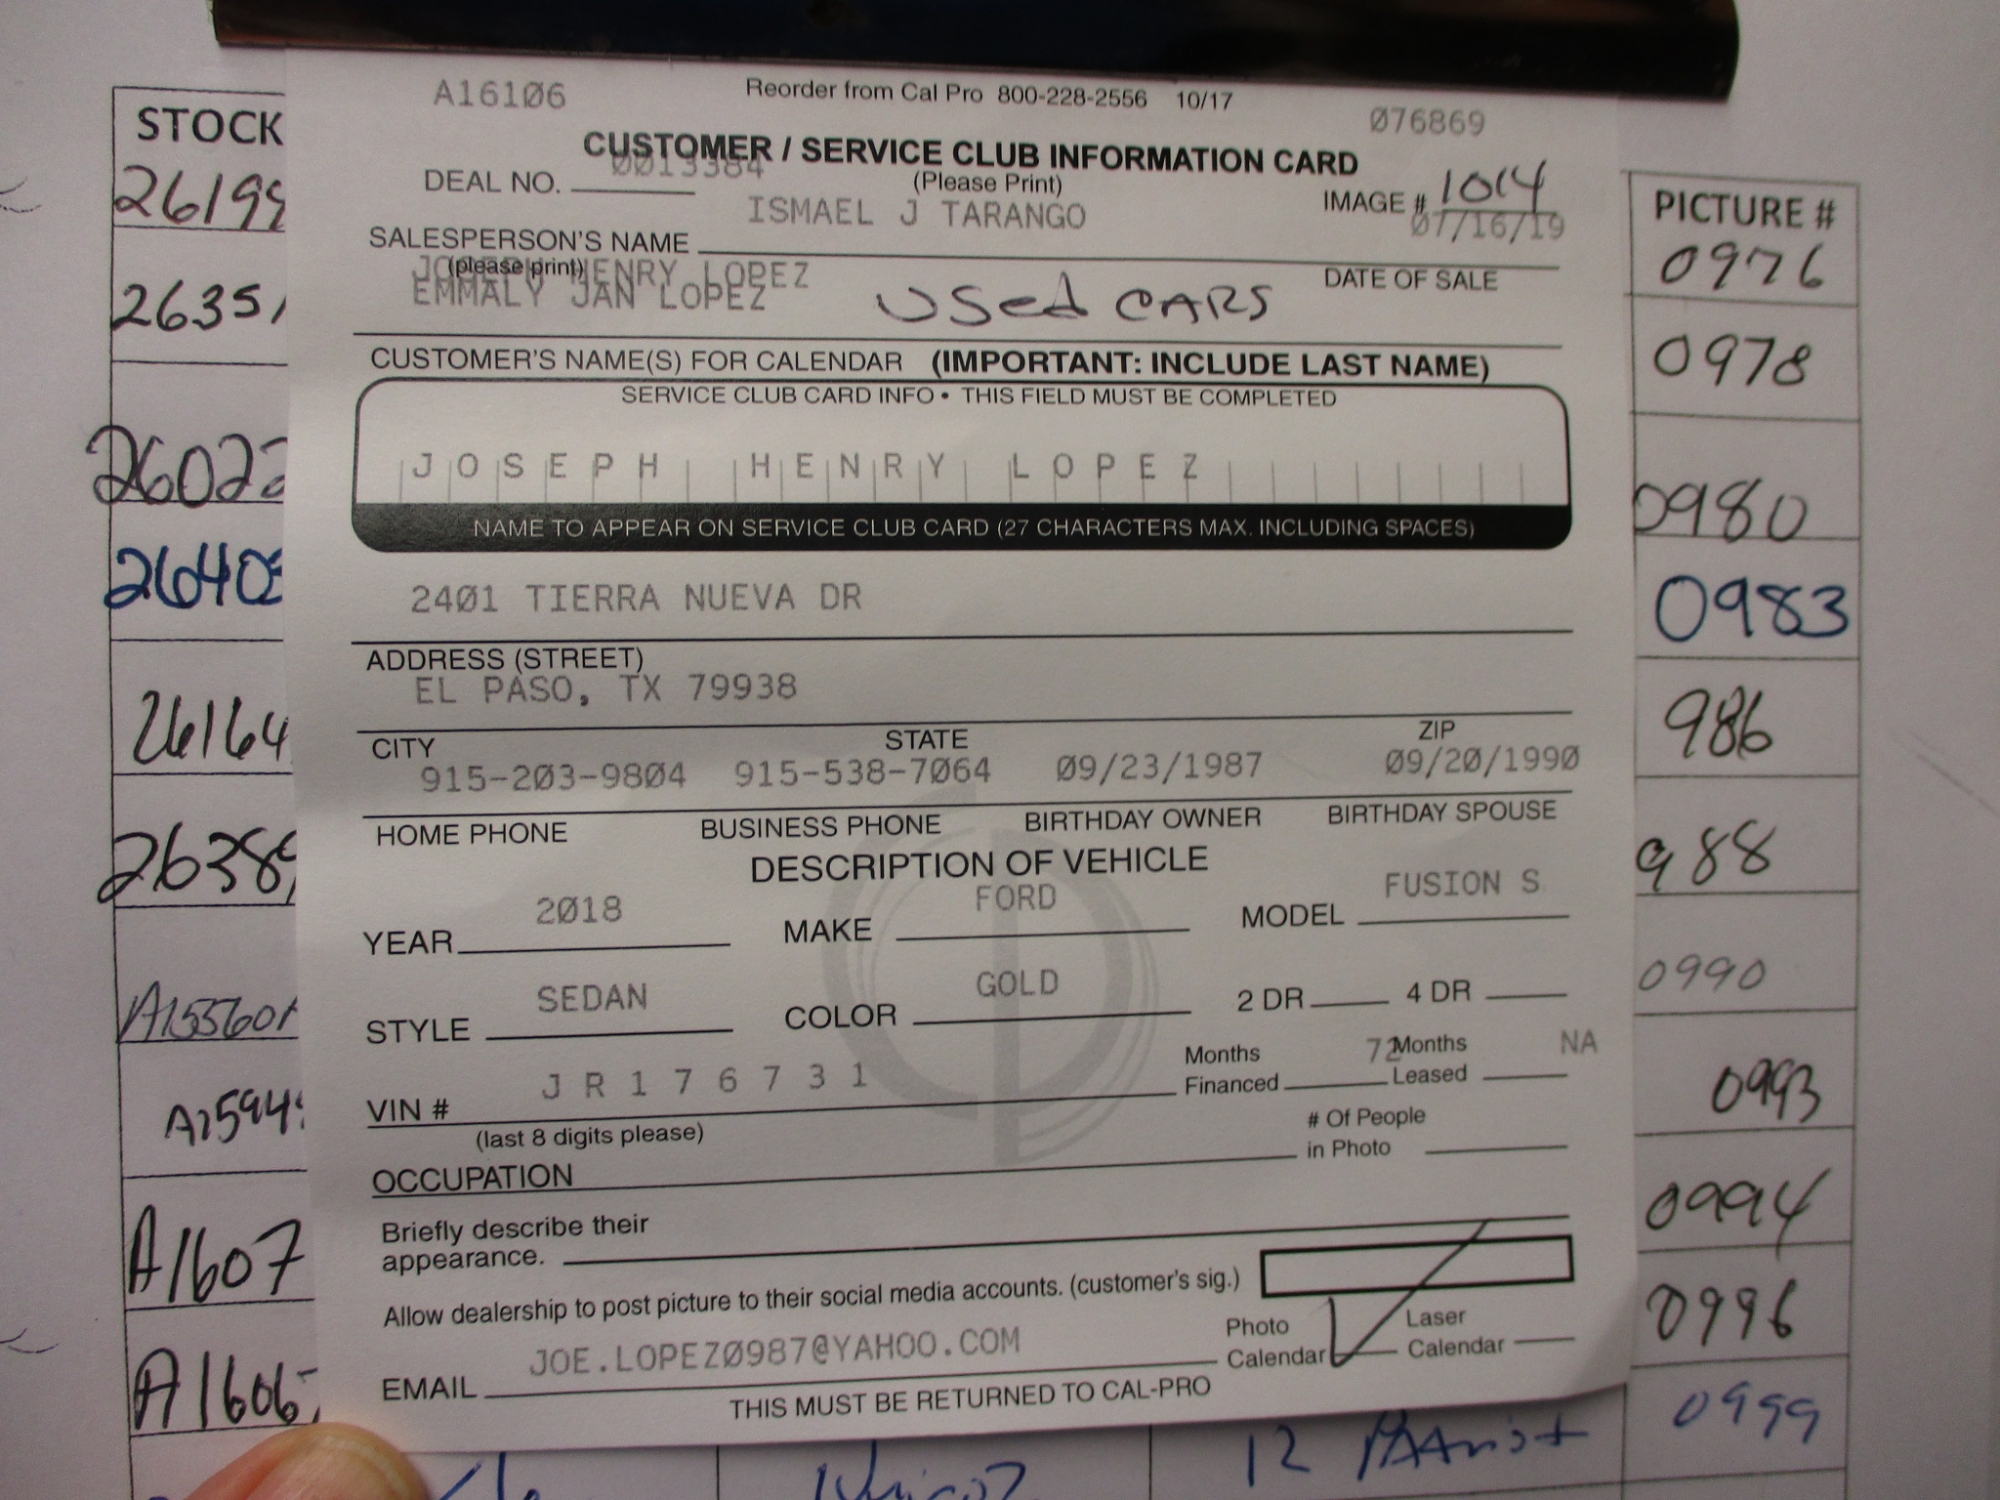 A16106
Reorder from Cal Pro 800-228-2556 10/17
076869
CUSTOMER / SERVICE CLUB INFORMATION CARD
(Please Print)
DEAL NO. 0013384
ISMAEL J TARANGO
IMAGE # 1014
07/16/19
SALESPERSON'S NAME
(please print)
DATE OF SALE
JOSEPH HENRY LOPEZ
EMMALY JAN LOPEZ
USed CARS
CUSTOMER'S NAME(S) FOR CALENDAR (IMPORTANT: INCLUDE LAST NAME)
SERVICE CLUB CARD INFO • THIS FIELD MUST BE COMPLETED
JOSEPH HENRY LOPEZ
NAME TO APPEAR ON SERVICE CLUB CARD (27 CHARACTERS MAX. INCLUDING SPACES)
2401 TIERRA NUEVA DR
ADDRESS (STREET)
EL PASO, TX 79938
CITY STATE ZIP
915-203-9804 915-538-7064 09/23/1987 09/20/1990
HOME PHONE BUSINESS PHONE BIRTHDAY OWNER BIRTHDAY SPOUSE
DESCRIPTION OF VEHICLE
YEAR 2018 MAKE FORD MODEL FUSION S
STYLE SEDAN COLOR GOLD 2 DR 4 DR
VIN # JR176731
(last 8 digits please)
Months Financed 72 Months Leased NA
# Of People in Photo
OCCUPATION
Briefly describe their
appearance.
Allow dealership to post picture to their social media accounts. (customer's sig.)
Photo Calendar
Laser Calendar
EMAIL JOE.LOPEZ0987@YAHOO.COM
THIS MUST BE RETURNED TO CAL-PRO
STOCK
26199
26351
26022
26164
26389
A15560A
A1607
PICTURE #
0976
0978
0980
0983
986
988
0990
0993
0994
0996
0999
12